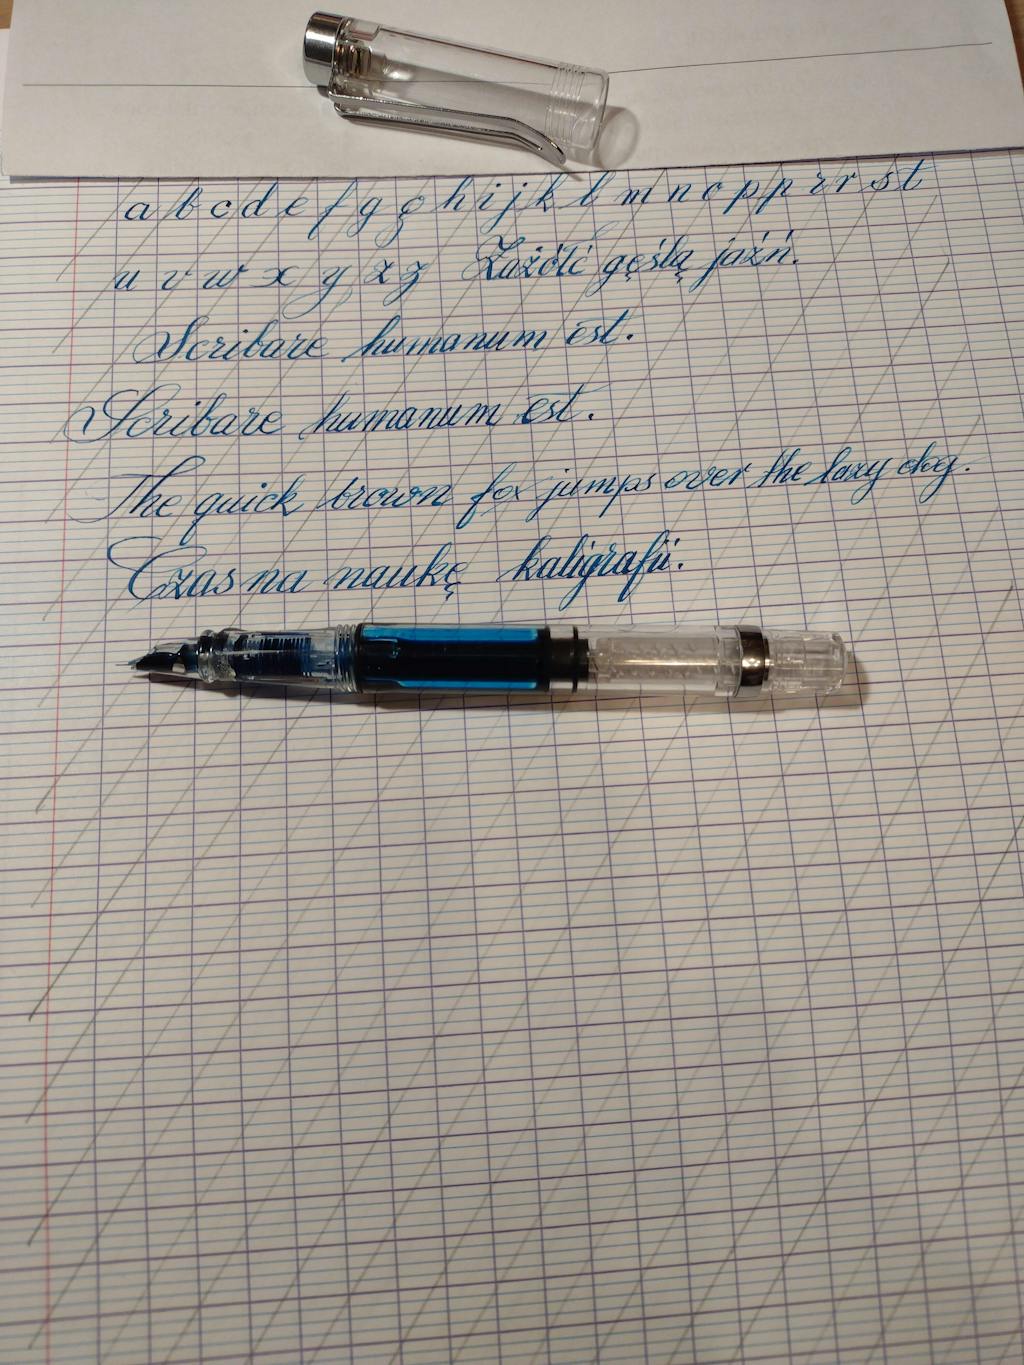 a b c d e f g g h i j k l m n o p p r r s t
u v w x y z z Zażółć gęślą jaźń.
Scribare humanum est.
Scribare humanum est.
The quick brown fox jumps over the lazy dog.
Czas na naukę kaligrafii.